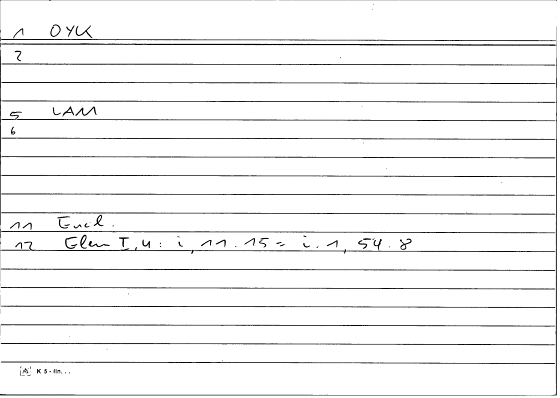 1 OYK
2
5 LAM
6
11 Eucl.
12 Elem I, 4: i, 11.15 = i.1, 54.8
K 5 - lin...